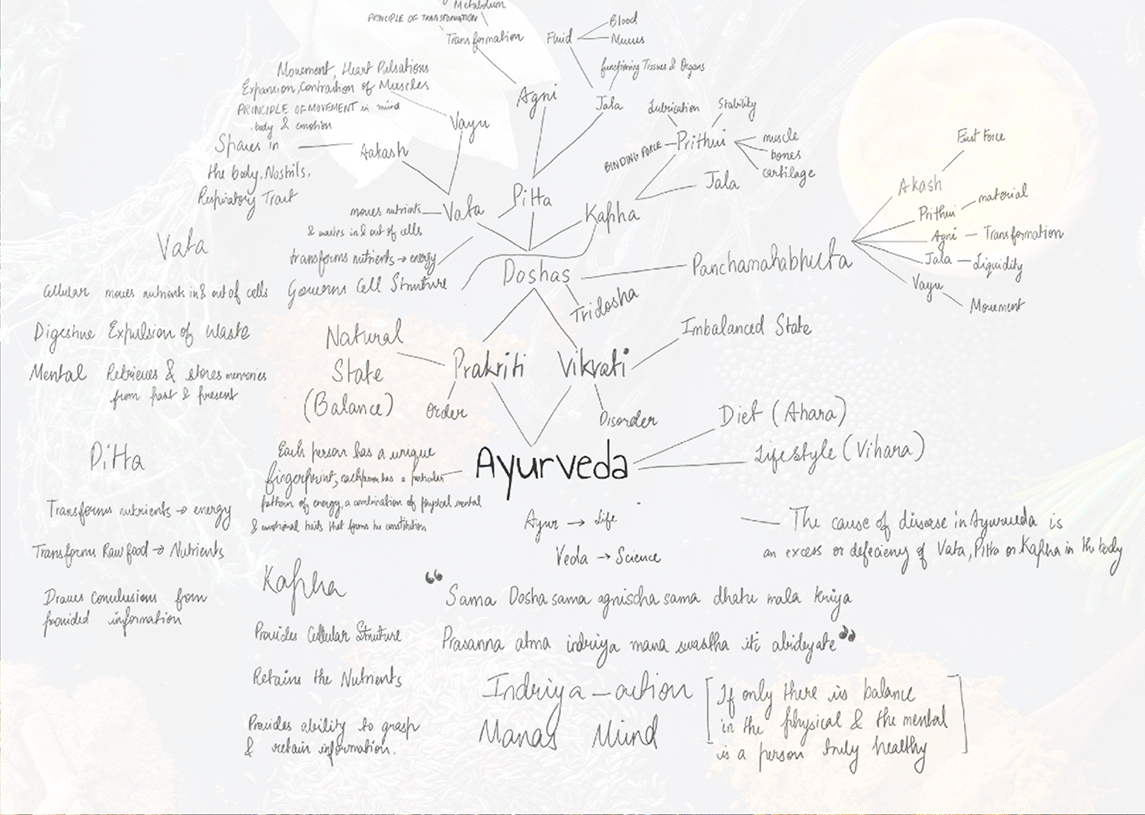 Metabolism
PRINCIPLE OF TRANSFORMATION
Transformation
Fluid
Blood
Mucus
functioning Tissues & Organs
Agni
Jala
Movement, Heart Pulsations
Expansion, Contraction of Muscles
PRINCIPLE OF MOVEMENT in mind
body & emotion
Vayu
Spaces in
the body, Nostrils,
Respiratory Tract
Aakash
Lubrication
Stability
BINDING FORCE
Prithvi
muscle
bones
cartilage
Jala
Vata
Pitta
Kapha
moves nutrients
& wastes in & out of cells
transforms nutrients → energy
Governs Cell Structure
Doshas
Tridosha
Panchamahabhuta
Akash
First Force
Prithvi
material
Agni
Transformation
Jala
Liquidity
Vayu
Movement
Vata
Cellular moves nutrients in & out of cells
Digestive Expulsion of Waste
Mental Retrieves & stores memories
from past & present
Natural
State
(Balance)
Prakriti
Order
Vikrati
Imbalanced State
Disorder
Ayurveda
Diet (Ahara)
Lifestyle (Vihara)
Each person has a unique
fingerprint, each person has a particular
pattern of energy, a combination of physical mental
& emotional traits that forms his constitution
Ayur → Life
Veda → Science
The cause of disease in Ayurveda is
an excess or deficiency of Vata, Pitta or Kapha in the body
Pitta
Transforms nutrients → energy
Transforms Raw food → Nutrients
Draws Conclusions from
provided information
Kapha
Provides Cellular Structure
Retains the Nutrients
Provides ability to grasp
& retain information.
“ Sama Dosha sama agnischa sama dhatu mala kriya
Prasanna atma indriya mana swastha iti abideyate ”
Indriya – action
Manas Mind
[If only there is balance
in the physical & the mental
is a person truly healthy]